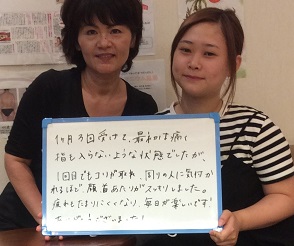 1ヶ月3回受けて、最初は痛くて
指も入らないような状態でしたが、
1回目でもコリが取れ、周りの人に気付か
れるほど顔首あたりがスッキリしました。
疲れもたまりにくくなり、毎日が楽しいです!
ありがとうございました!